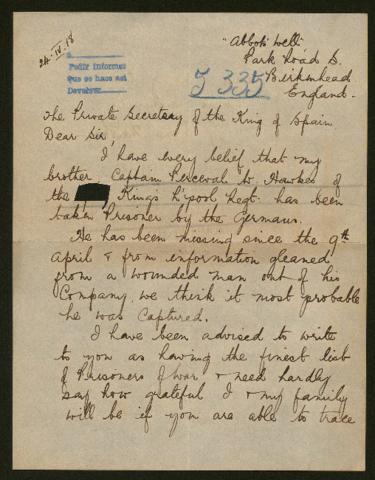 "Abbots Well"
24.IV.18
Park Road S.
Pedir Informes
Que se hace así
Devolver
J 335
Birkenhead
England.
The Private Secretary of the King of Spain
Dear Sir
I have every belief that my
brother Captain Perceval W Hawkes of
the Kings L'pool Regt. has been
taken Prisoner by the Germans.
He has been missing since the 9th
April & from information gleaned
from a wounded man out of his
Company we think it most probable
he was captured.
I have been advised to write
to you as having the finest list
of Prisoners of War & need hardly
say how grateful I & my family
will be if you are able to trace